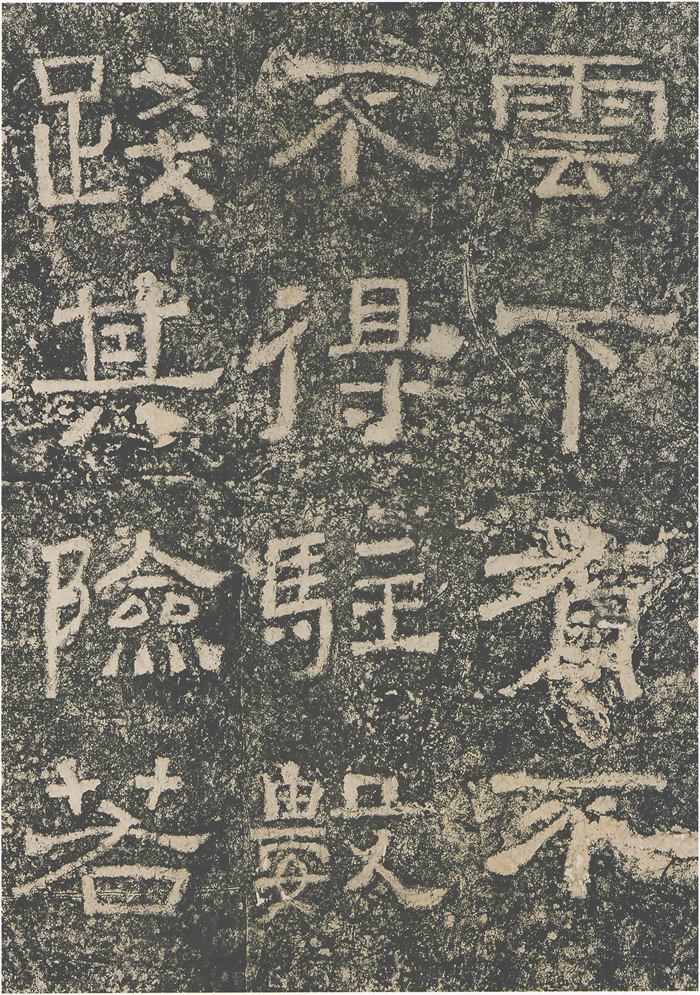 雲下有不
不得駐數
踐其險若